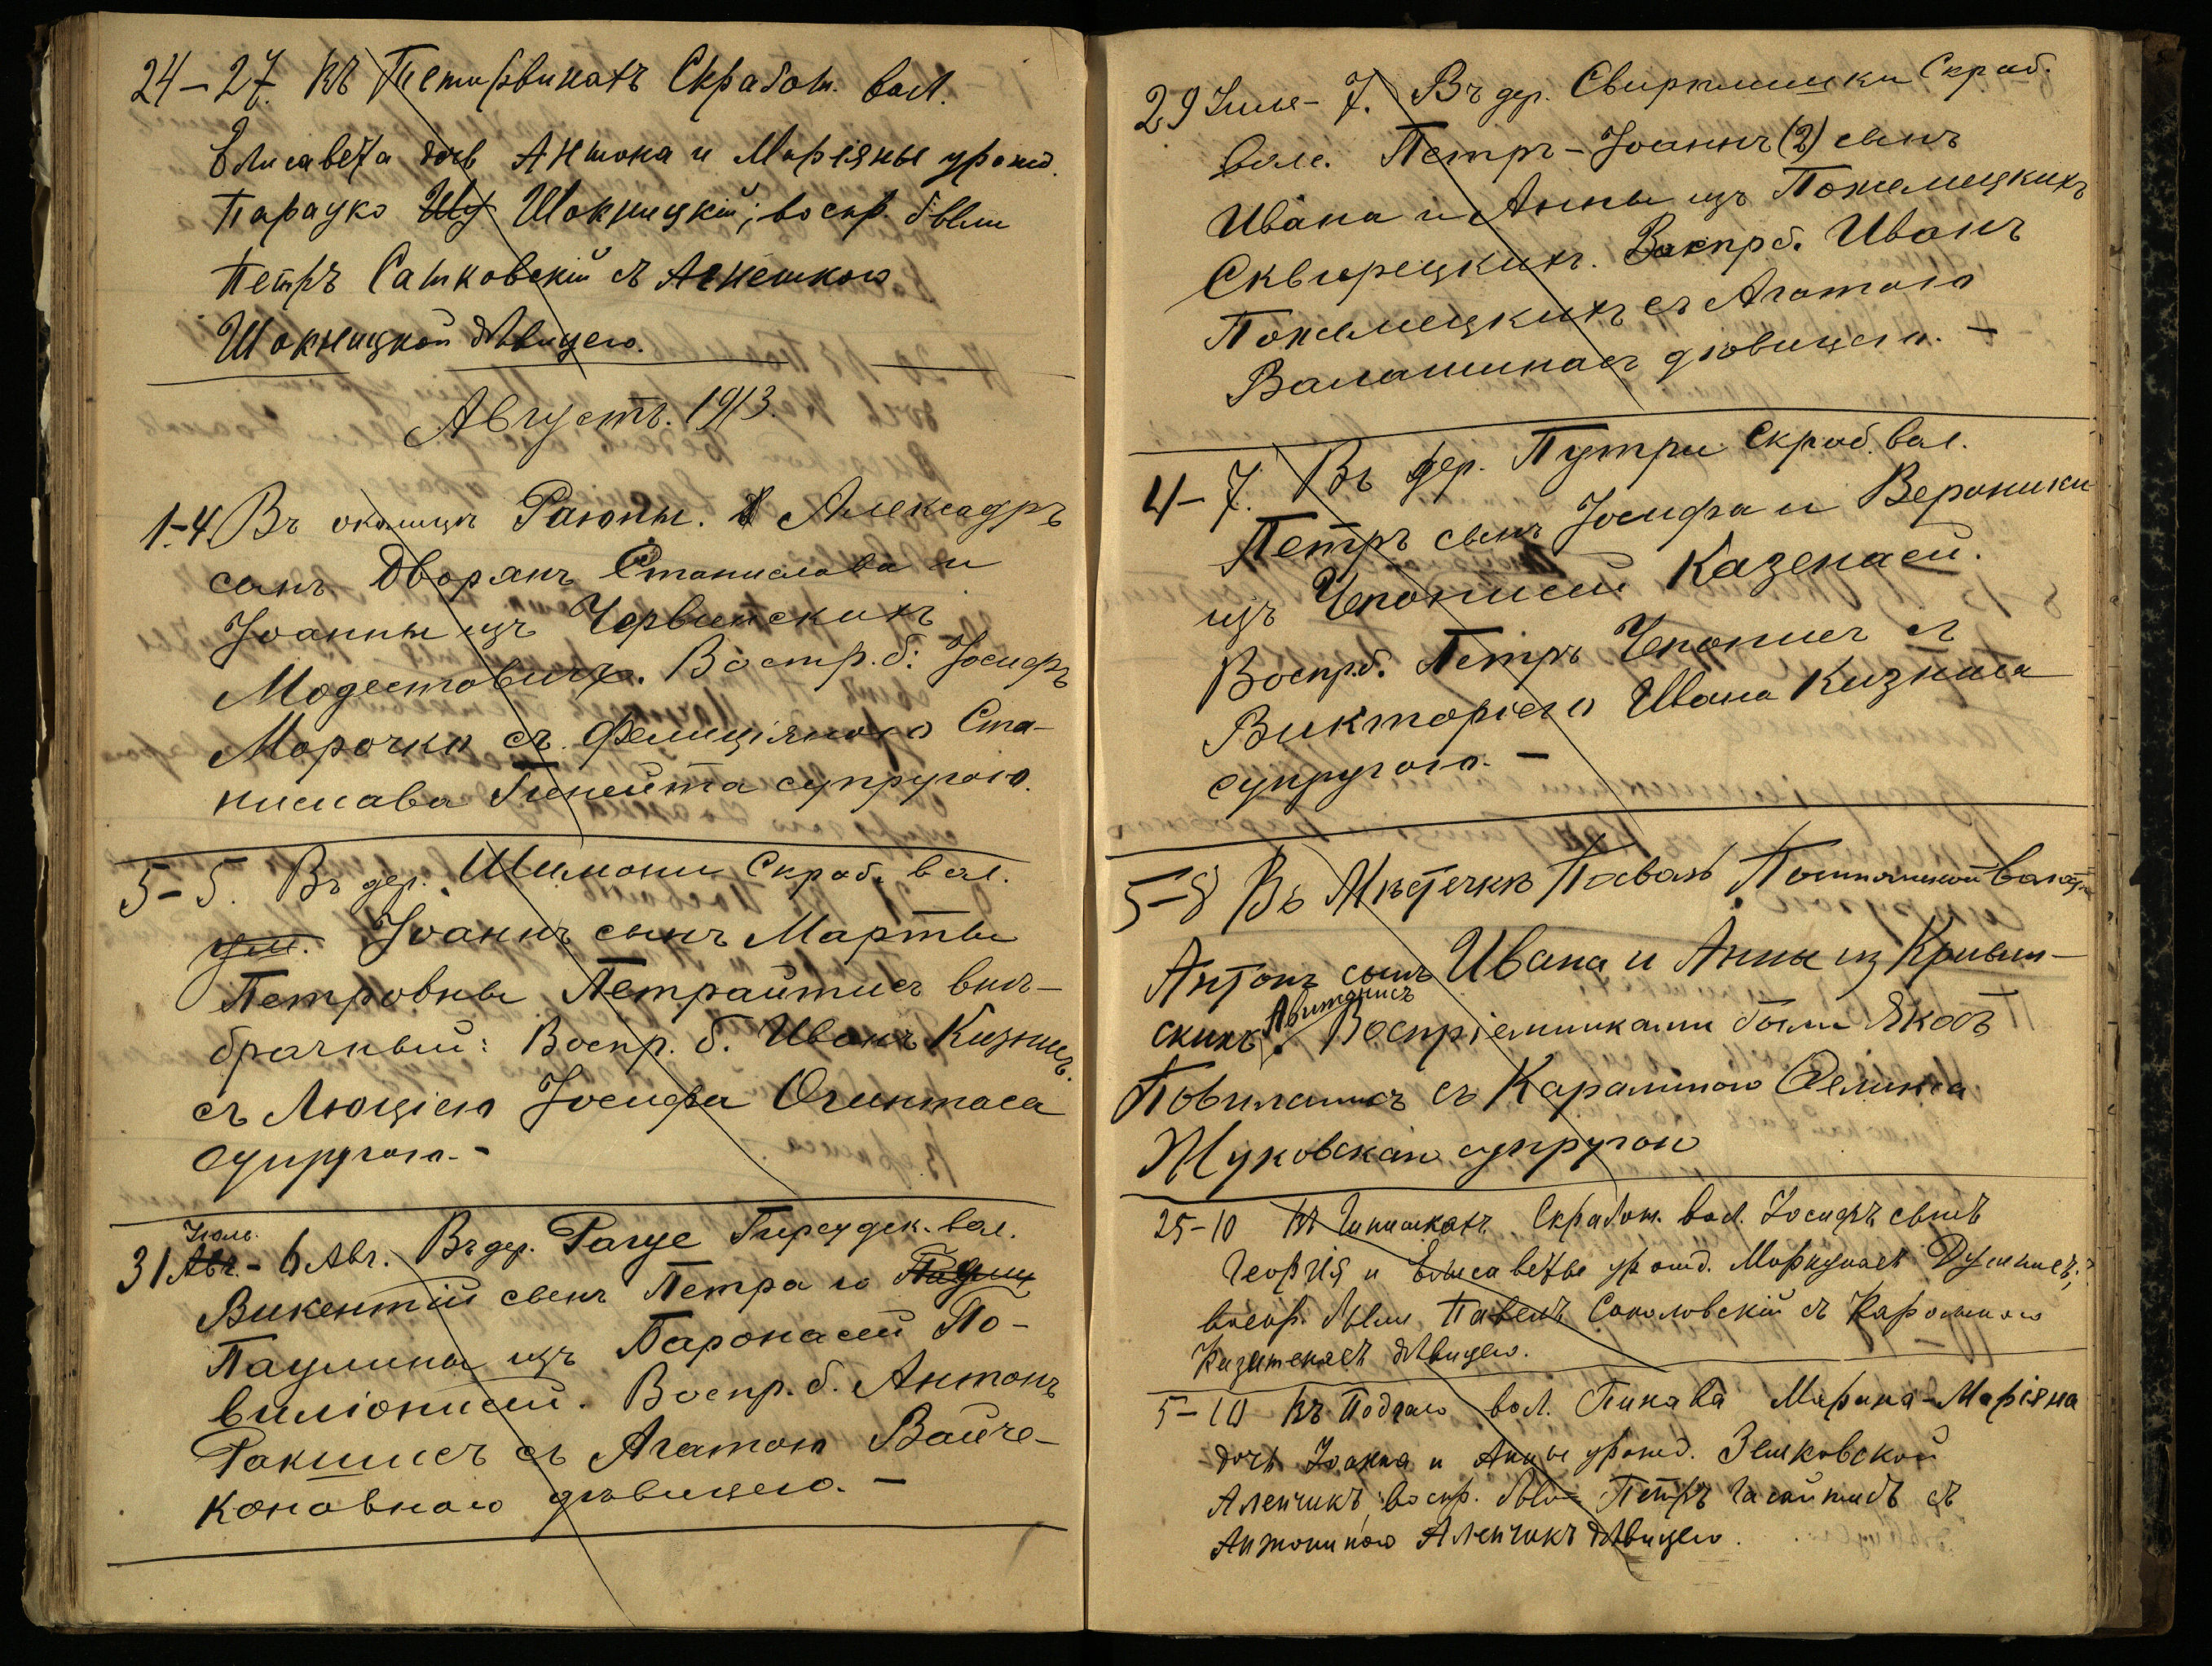 24–27. Въ Скработ. вол.
Елисавета дочь Антона и Маріяны урожд.
Парацко Шокницкій; воспр. были
Петръ Сатковскій съ Агнешкою
Шокницкой дѣвицею.
Августъ. 1913.
1–4. Въ околицѣ Раюны. Алексадръ
сынъ Дворянъ Станислава и
Іоанны изъ Червинскихъ
Модестовичъ. Воспр. б: Іосифъ
Морочко съ Фелиціяною Ста-
нислава супругою.
5–5. Въ дер. Шимони Скраб. вол.
Іоаннъ сынъ Марты
Петровны Петрайтисъ внѣ-
брачный: Воспр. б. Иванъ Кизнисъ.
съ Люціею Іосифа Огинтаса
супругою. –
31 Іюль. Авг. – 6 Авг. Въ дер. вол.
Викентій сынъ Петра ю
Паулины изъ Баронасей По-
вилюнисей. Воспр. б. Антонъ
Ракшисъ съ Агатою Войче-
коновною дѣвицею. –
29 Іюля – 7. Въ дер. Скраб.
вол. Петръ-Іоаннъ (2) сынъ
Ивана и Анны изъ Пожелецкихъ
Сквирецкихъ. Воспр б. Иванъ
Пожелецкихъ съ Агатою
Валашинасъ дѣвицею. –
4–7. Въ дер. Путри Скраб. вол.
Петръ сынъ Іосифа и Вероники
изъ Чепонисей Казенасей.
Воспр. б. Петръ Чепонисъ съ
Викторіею Ивана Кизниса
супругою. –
5–8 Въ Мѣстечкѣ
Антонъ сынъ Ивана и Анны из Кривин-
скихъ. Воспріемниками были Якобъ
съ Каралиною Феликса
Жуковскаю супругою
25–10 Въ Скработ. вол. Іосифъ сынъ
Георгія и Елисаветы урожд.
воспр. были Павелъ Соколовскій съ Каролиною
дѣвицею.
5–10 Въ вол. Марина-Маріяна
дочь Іоанна и Анны урожд. Зенковской
Аленчикъ; воспр. были Петръ съ
Антониною Аленчикъ дѣвицею.